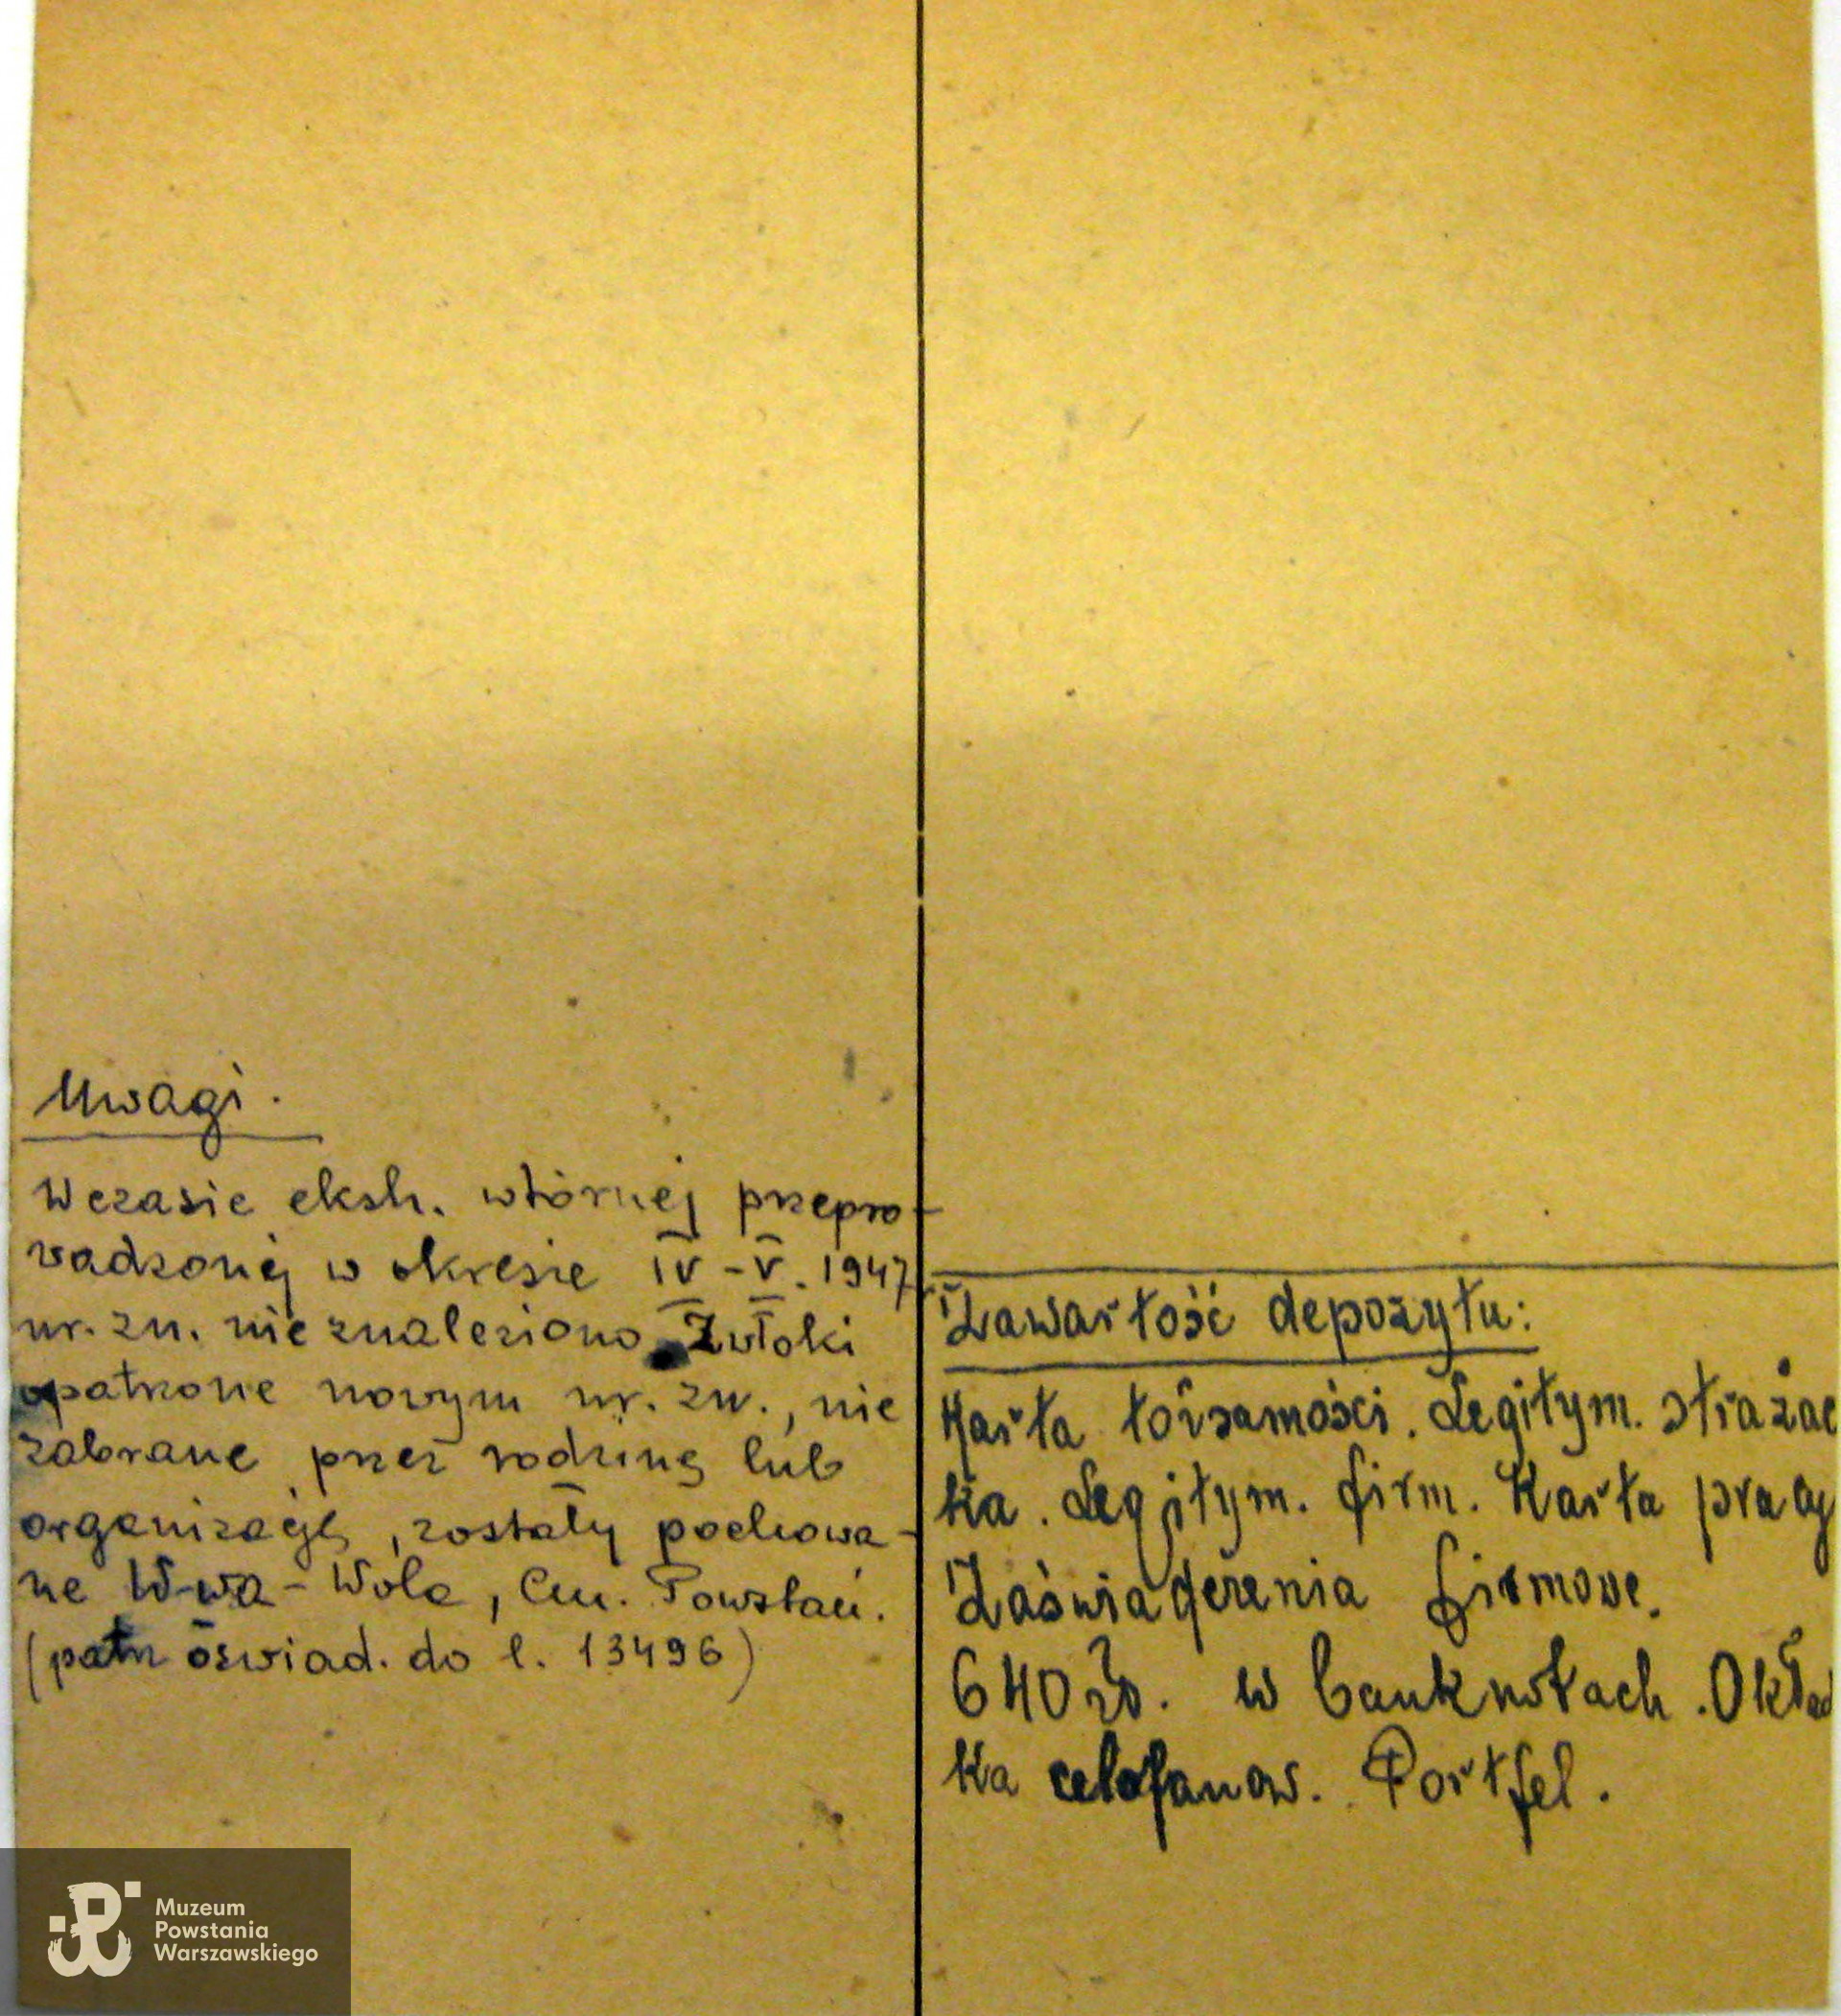 Uwagi.
W czasie eksh. wtórnej przepro-
wadzonej w okresie IV-V. 1947
nr. zn. nie znaleziono Zwłoki
opatrzone nowym nr. zn., nie
zabrane przez rodzinę lub
organizację, zostały pochowa-
ne W-wa - Wola, Cm. Powstań.
(patrz oświad. do l. 13496)
Zawartość depozytu:
Karta tożsamości. Legitym. strażac
ka. Legitym. firm. Karta pracy
Zaświadczenia firmowe.
640 zł. w banknotach. Okład
ka celofanow. Portfel.
Muzeum
Powstania
Warszawskiego